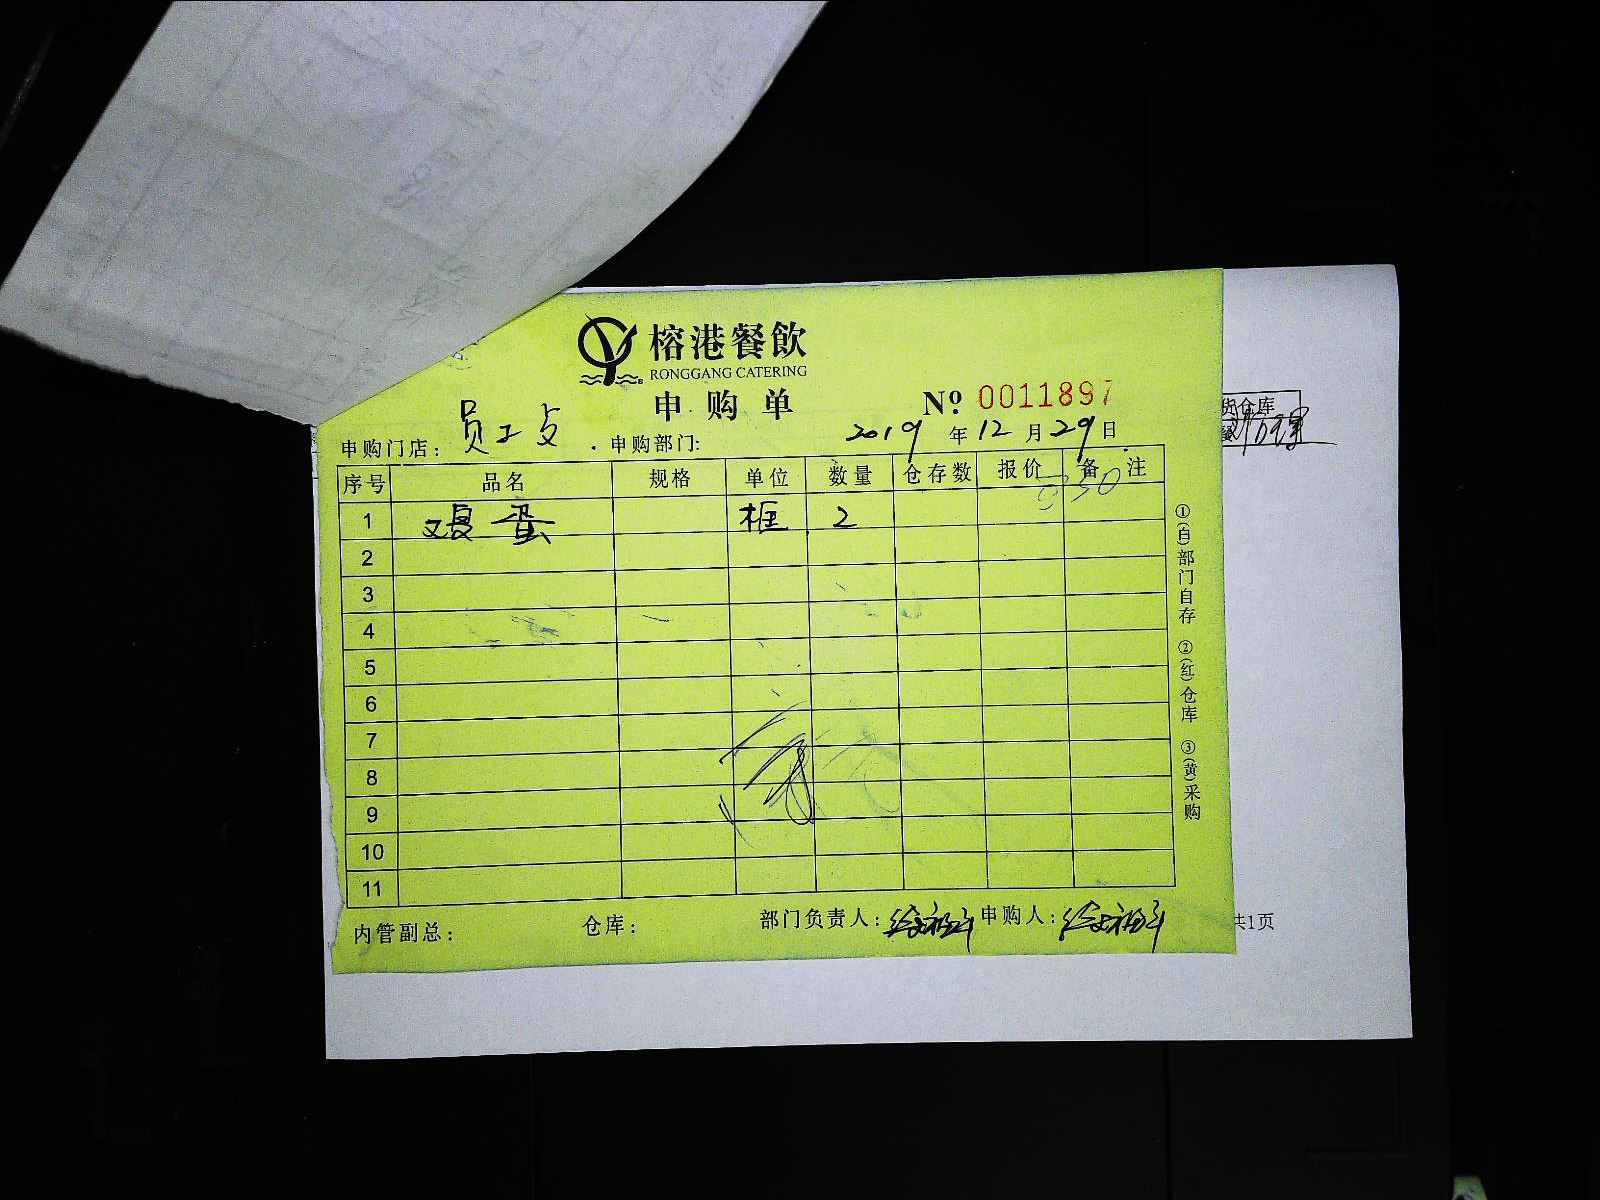 榕港餐飲
RONGGANG CATERING
申购单 Nº 0011897
申购门店： 员工 申购部门: 2019 年 12 月 29 日
序号 品名 规格 单位 数量 仓存数 报价 备注
1 鸡蛋 框 2
2
3
4
5
6
7
8
9
10
11
内管副总： 仓库： 部门负责人： 申购人：
①(白)部门自存 ②(红)仓库 ③(黄)采购
共1页